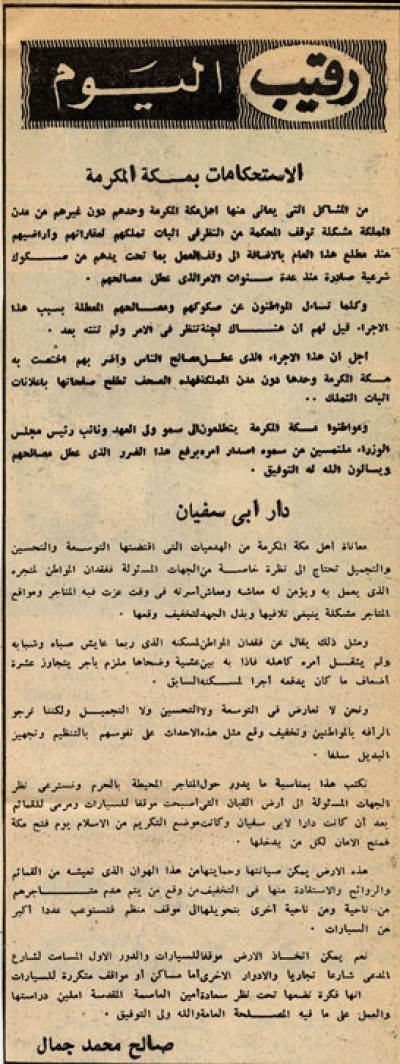 رقيب اليوم
الاستحكامات بمكة المكرمة
من المشاكل التي يعانى منها أهل مكة المكرمة وحدهم دون غيرهم من مدن
المملكة مشكلة توقف المحكمة من النظر فى اثبات تملكهم لعقاراتهم وأراضيهم
منذ مطلع هذا العام بالاضافة الى وقف العمل بما تحت يدهم من صكوك
شرعية صادرة منذ عدة سنوات الامر الذى عطل مصالحهم .
وكلما تساءل المواطنون عن صكوكهم ومصالحهم المعطلة بسبب هذا
الاجراء قيل لهم أن هناك لجنة تنظر فى الامر ولم تنته بعد .
أجل ان هذا الاجراء الذى عطل مصالح الناس وأضر بهم اختصت به
مكة المكرمة وحدها دون مدن المملكة فهذه الصحف تطفح صفحاتها باعلانات
اثبات التملك ..
ومواطنوا مكة المكرمة يتطلعون الى سمو ولى العهد ونائب رئيس مجلس
الوزراء ملتمسين من سموه اصدار أمره برفع هذا الضرر الذى عطل مصالحهم
ويسالون الله له التوفيق .
دار ابى سفيان
معاناة أهل مكة المكرمة من الهدميات التى اقتضتها التوسعة والتحسين
والتجميل تحتاج الى نظرة خاصة من الجهات المسئولة ففقدان المواطن لمتجره
الذى يعمل به ويؤمن له معاشه ومعاش أسرته فى وقت عزت فيه المتاجر ومواقع
المتاجر مشكلة ينبغى تلافيها وبذل الجهد لتخفيف وقعها .
ومثل ذلك يقال عن فقدان المواطن لمسكنه الذى ربما عايش صباه وشبابه
ولم يثقل أمره كاهله فاذا به بين عشية وضحاها ملزم بأجر يتجاوز عشرة
أضعاف ما كان يدفعه أجرا لمسكنه السابق .
ونحن لا نعارض فى التوسعة ولا التحسين ولا التجميل ولكننا نرجو
الرأفه بالمواطنين وتخفيف وقع مثل هذه الاحداث على نفوسهم بالتنظيم وتجهيز
البديل سلفا .
نكتب هذا بمناسبة ما يدور حول المتاجر المحيطة بالحرم ونسترعى نظر
الجهات المسئولة الى أرض القبان التى أصبحت موقفا للسيارات ومرمى للقمائم
بعد أن كانت دارا لابى سفيان وكانت موضع التكريم من الاسلام يوم فتح مكة
فمنح الامان لكل من يدخلها .
هذه الارض يمكن صيانتها وحمايتها من هذا الهوان الذى تعيشه من القمائم
والروائح والاستفادة منها فى التخفيف من وقع من يتم هدم متاجرهم
من ناحية ومن ناحية أخرى بتحويلها الى موقف منظم فتستوعب عددا أكبر
من السيارات .
نعم يمكن اتخاذ الارض موقفا للسيارات والدور الاول المسامت لشارع
المدعى شارعا تجاريا والادوار الاخرى أما مساكن أو مواقف متكررة للسيارات
انها فكرة نضعها تحت نظر سعادة أمين العاصمة المقدسة املين دراستها
والعمل على ما فيه المصلحة العامة والله ولى التوفيق .
صالح محمد جمال